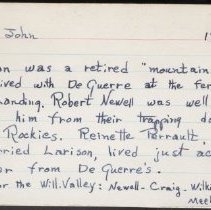 John 1
on was a retired "mountain
ived with De Guerre at the fer
Landing. Robert Newell was well
him from their trapping da
Rockies. Reinette Perrault,
rried Larison, lived just ac
or from De Guerre's.
or the Will. Valley: Newell - Craig - Wilk
Meek